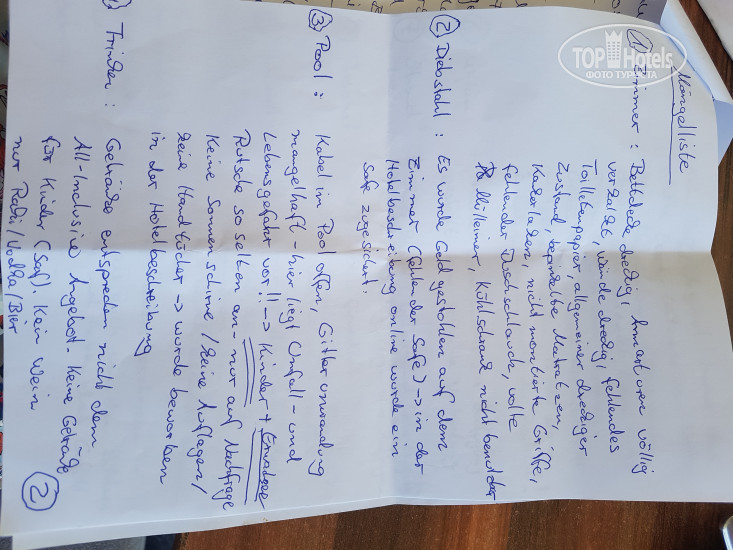 Mängelliste
① Zimmer : Bettdecke dreckig, Armaturen völlig
verkalkt, Wände dreckig, fehlendes
Toilettenpapier, allgemeiner dreckiger
Zustand, kaputte Matratzen,
Kakerlaken, nicht montierte Griffe,
fehlender Duschschlauch, volle
Mülleimer, Kühlschrank nicht benutzbar
② Diebstahl : Es wurde Geld gestohlen auf dem
Zimmer (fehlender Safe) → in der
Hotelbeschreibung online wurde ein
Safe zugesichert.
③ Pool : Kabel in Pool offen, Gitterumrandung
mangelhaft - hier liegt Unfall- und
Lebensgefahr vor!! → Kinder + Erwachsene
Rutsche so selten an - nur auf Nachfrage
Keine Sonnenschirme / keine Auflagen /
keine Handtücher → wurde beworben
in der Hotelbeschreibung
Trinken : Getränke entsprechen nicht dem
All-Inclusive Angebot - keine Getränke
für Kinder (Saft). Kein Wein
nur Raki / Vodka / Bier
②
TOP Hotels
ФОТО ТУРИСТА